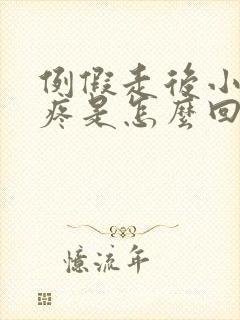 例假走後小
疼是怎麼回
憶流年